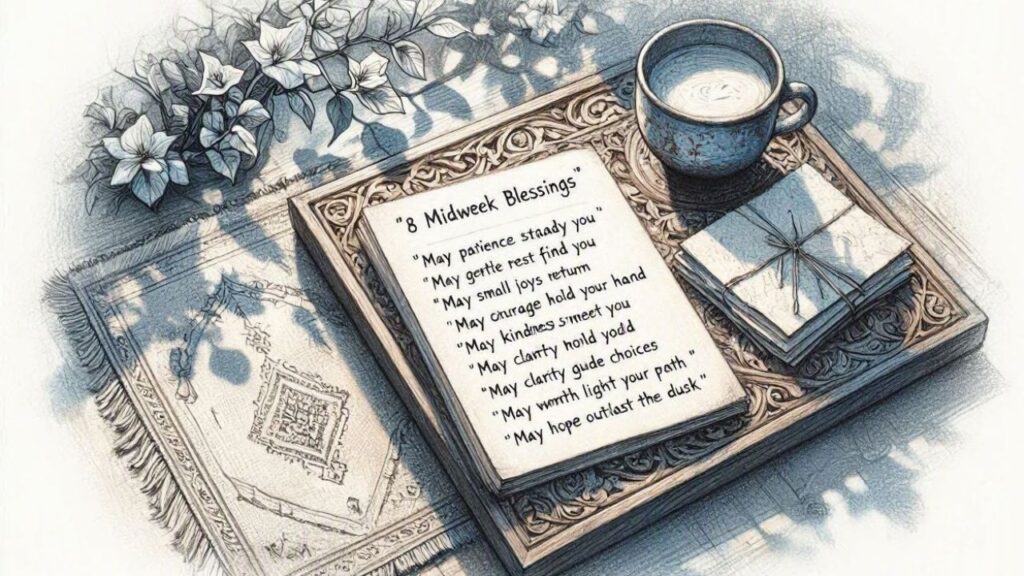 "8 Midweek Blessings"
"May patience steady you"
"May gertle rest find you
"May small joys return
"May courage hold your hand
"May kindness s'meet you
"May clarity hold yodd
"May clarity gude choices
"May wornth light your path"
"May hope outlast the dusk"